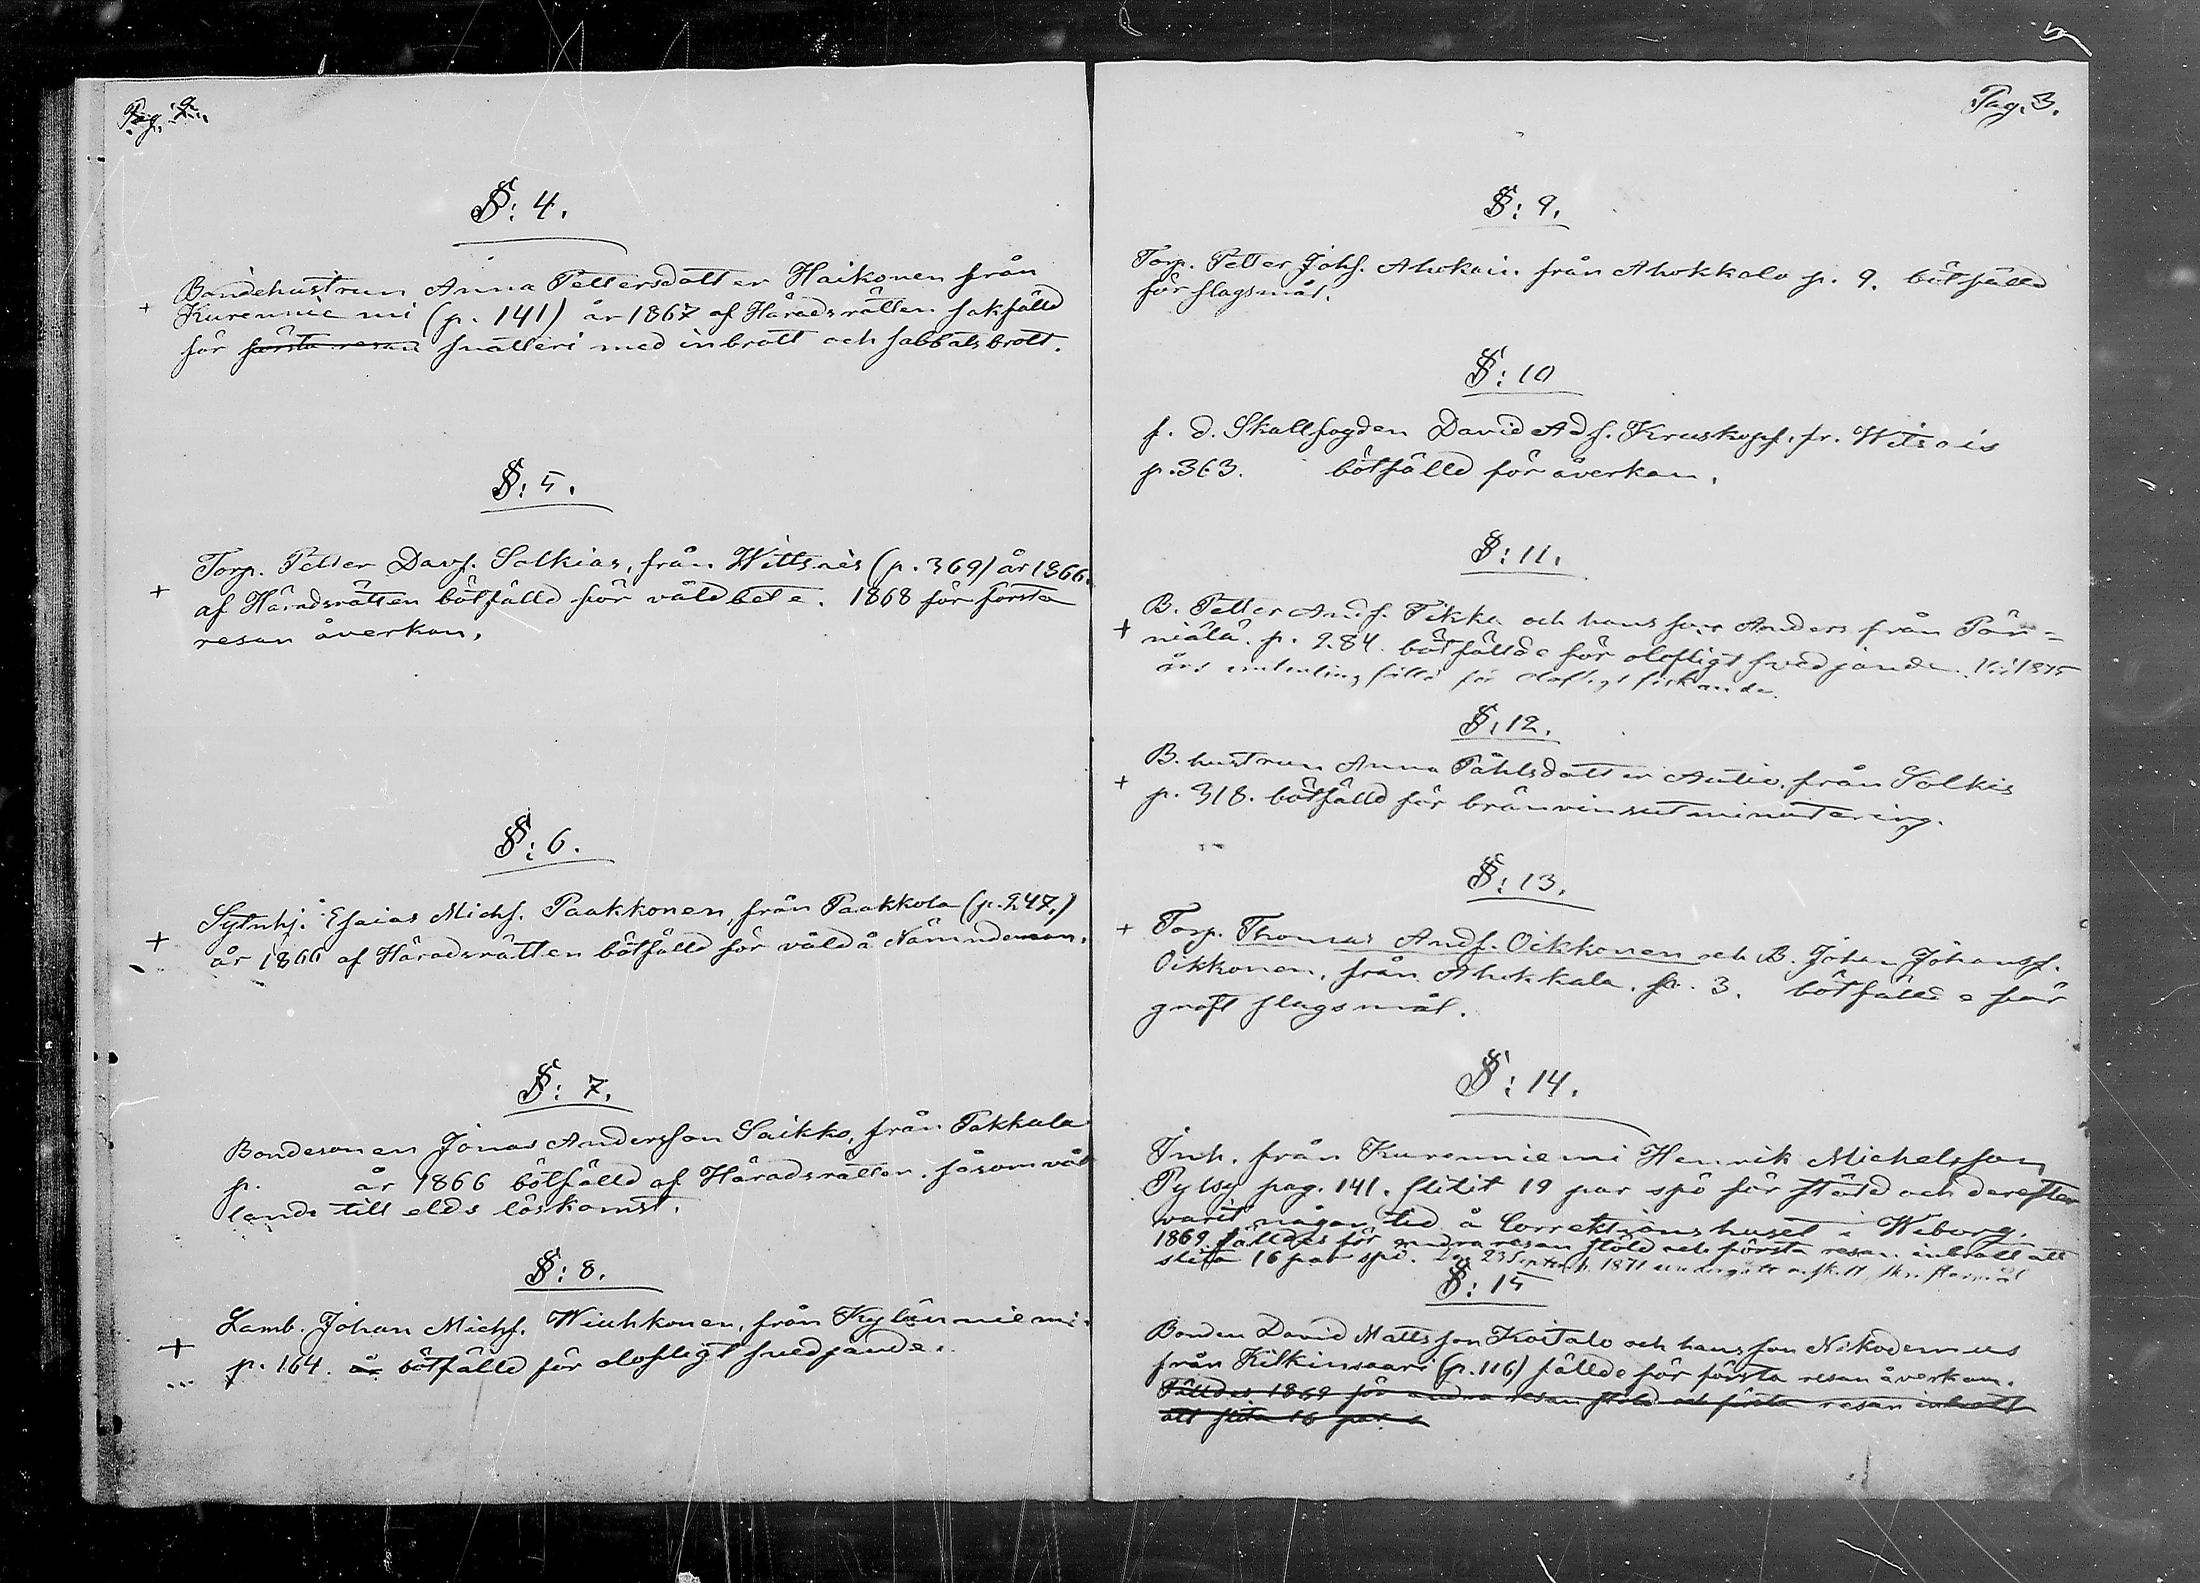 Pag. 2.
§: 4.
+ Bondehustrun Anna Pettersdotter Haikonen från
Kurenniemi (p. 141) år 1867 af Häradsrätten sakfälld
för första resan snatteri med inbrott och sabbatsbrott.
§: 5.
+ Torp. Petter Davs. Solkias, från Wittsais (p. 369) år 1866
af Häradsrätten bötfälld för våldbete. 1868 för första
resan åverkan.
§: 6.
+ Sytnhj. Esaias Michs. Paakkonen, från Paakkola (p. 247.)
år 1866 af Häradsrätten bötfälld för våld å Nämndeman.
§: 7.
Bondesonen Jonas Andersson Saikko, från Pakkala
p. år 1866 bötfälld af Häradsrätten såsom vål
lande till elds löskomst.
§: 8.
+ Lamb. Johan Michs. Wiuhkonen, från Kylänniemi.
p. 164. år bötfälld för olofligt svedjande.
Pag. 3.
§: 9.
Torp. Petter Johs. Ahokain. från Ahokkala p. 9. bötfälld
för slagsmål.
§: 10
f. d. Skallfogden David Ads. Kruskopf, fr. Witsais
p. 363. bötfälld för åverkan.
§: 11.
+ B. Petter Ands. Tikka och hans son Anders från Pär-
niälä. p. 284. bötfällde för olofligt svedjande. Vid 1875
års fälld för olofligt fiskande.
§: 12.
+ B. hustrun Anna Påhlsdotter Autio, från Solkis
p. 318. bötfälld för bränvinsutminutering.
§: 13.
+ Torp. Thomas Ands. Oikkonen och B. Johan Johanss.
Oikkonen, från Ahokkala. p. 3. bötfällde för
groft slagsmål.
§: 14.
Inh. från Kurenniemi Henrik Michelsson
Pylsy pag. 141. slitit 19 par spö för stöld och derefter
varit någon tid å Correktionshuset i Wiborg.
1869 fälldes för andra resan stöld och första resan inbrott att
slita 16 par spö. Den 23 Septemb. 1871 undergått enskilt skriftermål
§: 15
Bonden David Mattsson Koitalo och hans son Nikodemus
från Kilkinsaari (p. 116) fällde för första resan åverkan.
Fälldes 1869 för andra resan stöld och första resan inbrott
att slita 16 par s